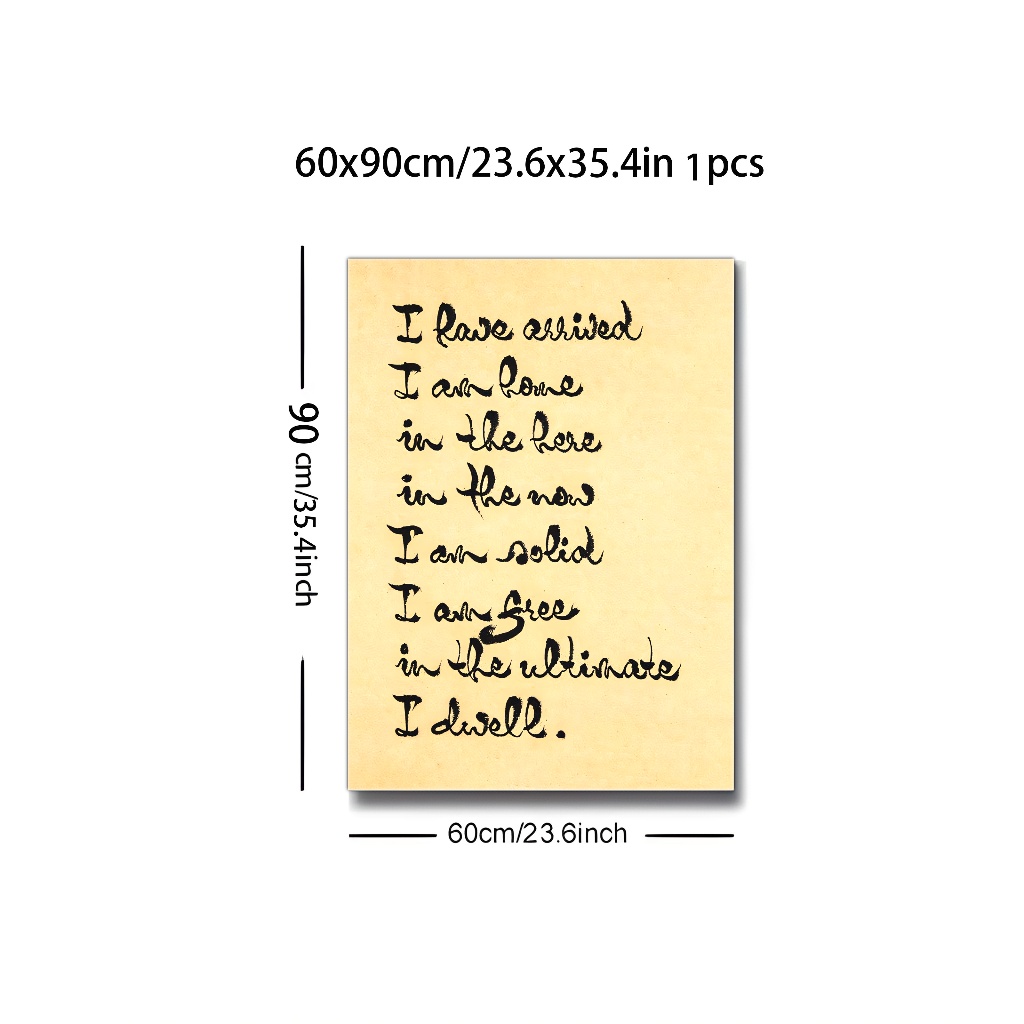 60x90cm/23.6x35.4in 1pcs
90 cm/35.4inch
I have arrived
I am home
in the here
in the now
I am solid
I am free
in the ultimate
I dwell.
60cm/23.6inch